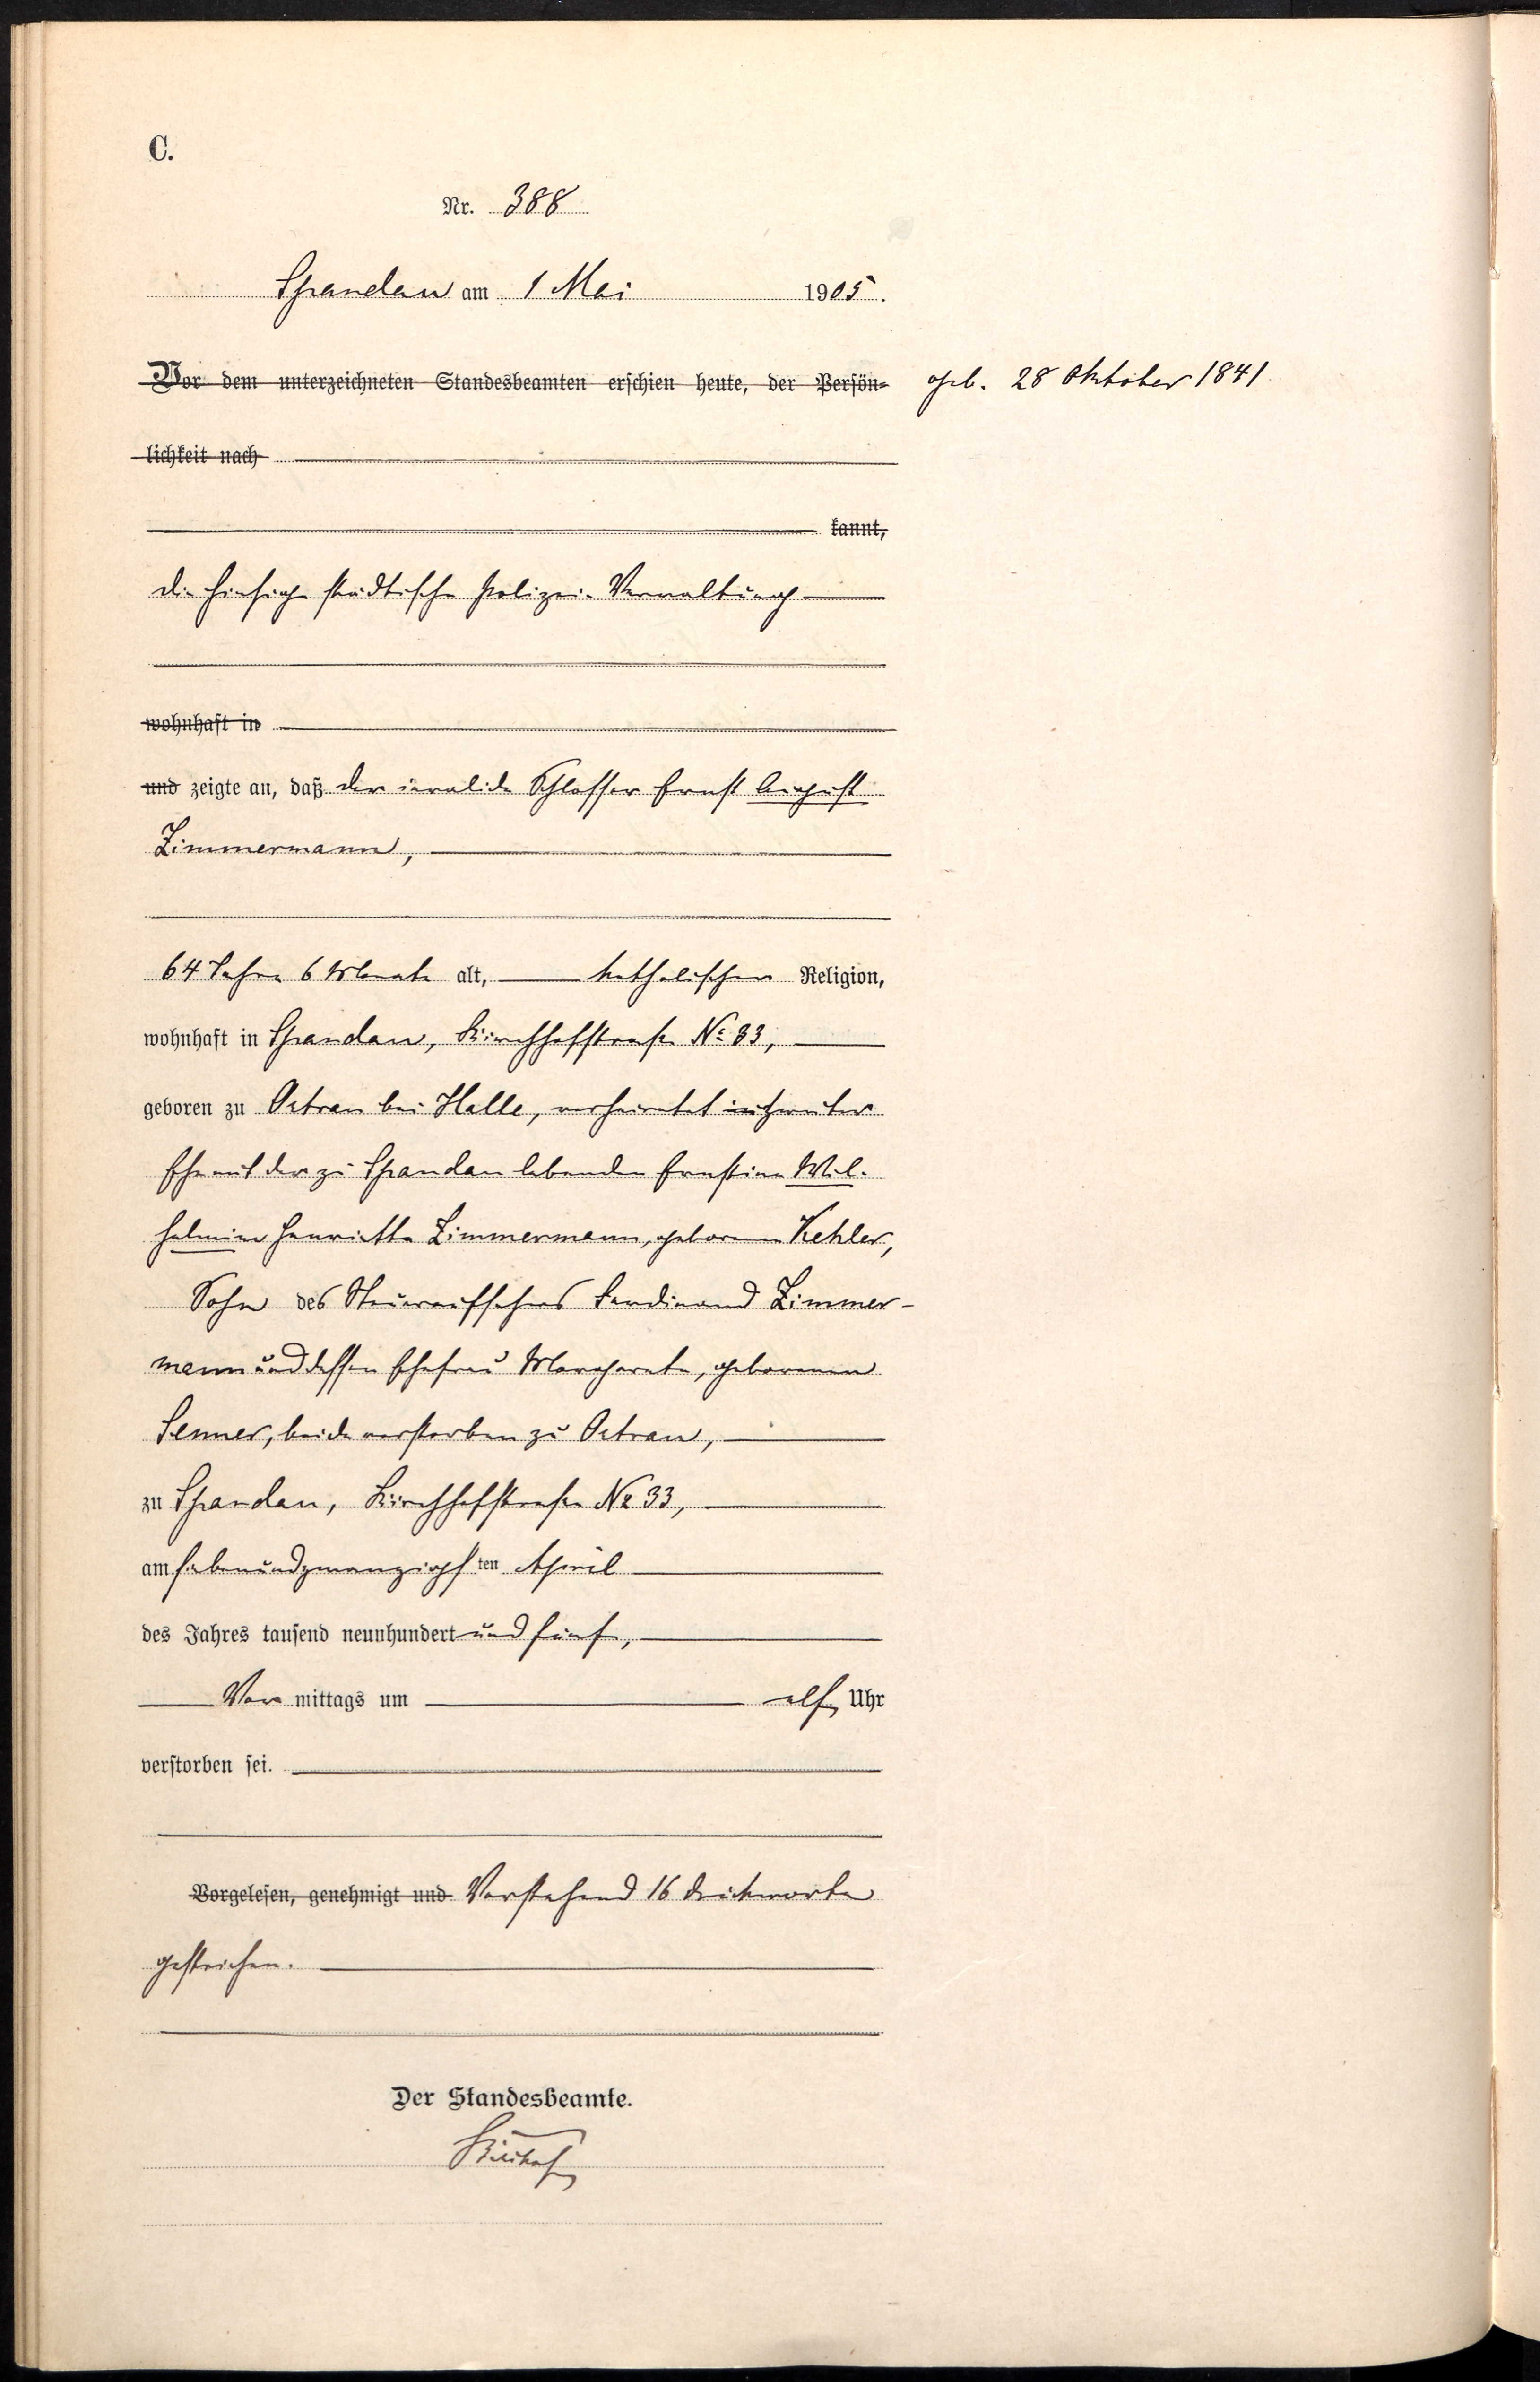 C.
Nr. 388
Spandau am 1 Mai 1905.
Vor dem unterzeichneten Standesbeamten erschien heute, der Persön-
geb. 28 Oktober 1841
lichkeit nach
kannt,
die hiesige städtische Polizei-Verwaltung
wohnhaft in
und zeigte an, daß der invalide Schlosser Ernst August
Zimmermann,
64 Jahre 6 Monate alt, katholischer Religion,
wohnhaft in Spandau, Kirchhofstraße No 33,
geboren zu Ostrau bei Halle, verheiratet in zweiter
Ehe mit der zu Spandau lebenden Ernstine Wil-
helmine Henriette Zimmermann, geborenen Kehler,
Sohn des Steueraufsehers Ferdinand Zimmer-
mann und dessen Ehefrau Margarete, geborenen
Senner, beide verstorben zu Ostrau,
zu Spandau, Kirchhofstraße No 33,
am siebenundzwanzigsten April
des Jahres tausend neunhundert und fünf,
Vor mittags um elf Uhr
verstorben sei.
Vorgelesen, genehmigt und Vorstehend 16 Druckworte
gestrichen.
Der Standesbeamte.